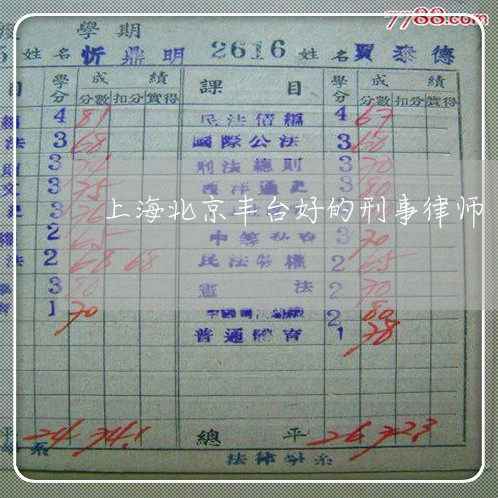 7788.com
學期
姓名 忻鼎明 2616 姓名 賈泰德
目 學分 成績 課目 學分 成績
分數 扣分 實得 分數 扣分 實得
4 81 民法債編 4 67
法 3 68 國際公法 3 60
3 刑法總則 3 70
3 75 西洋通史 3 80
上海北京丰台好的刑事律师
2 65 3 70
法 2 68 68 民法物權 2 65
3 80 憲法 2 70
1 70 2 80
普通體育 1 78
平 24 74.1 總平 26 72.3
系 法律學系